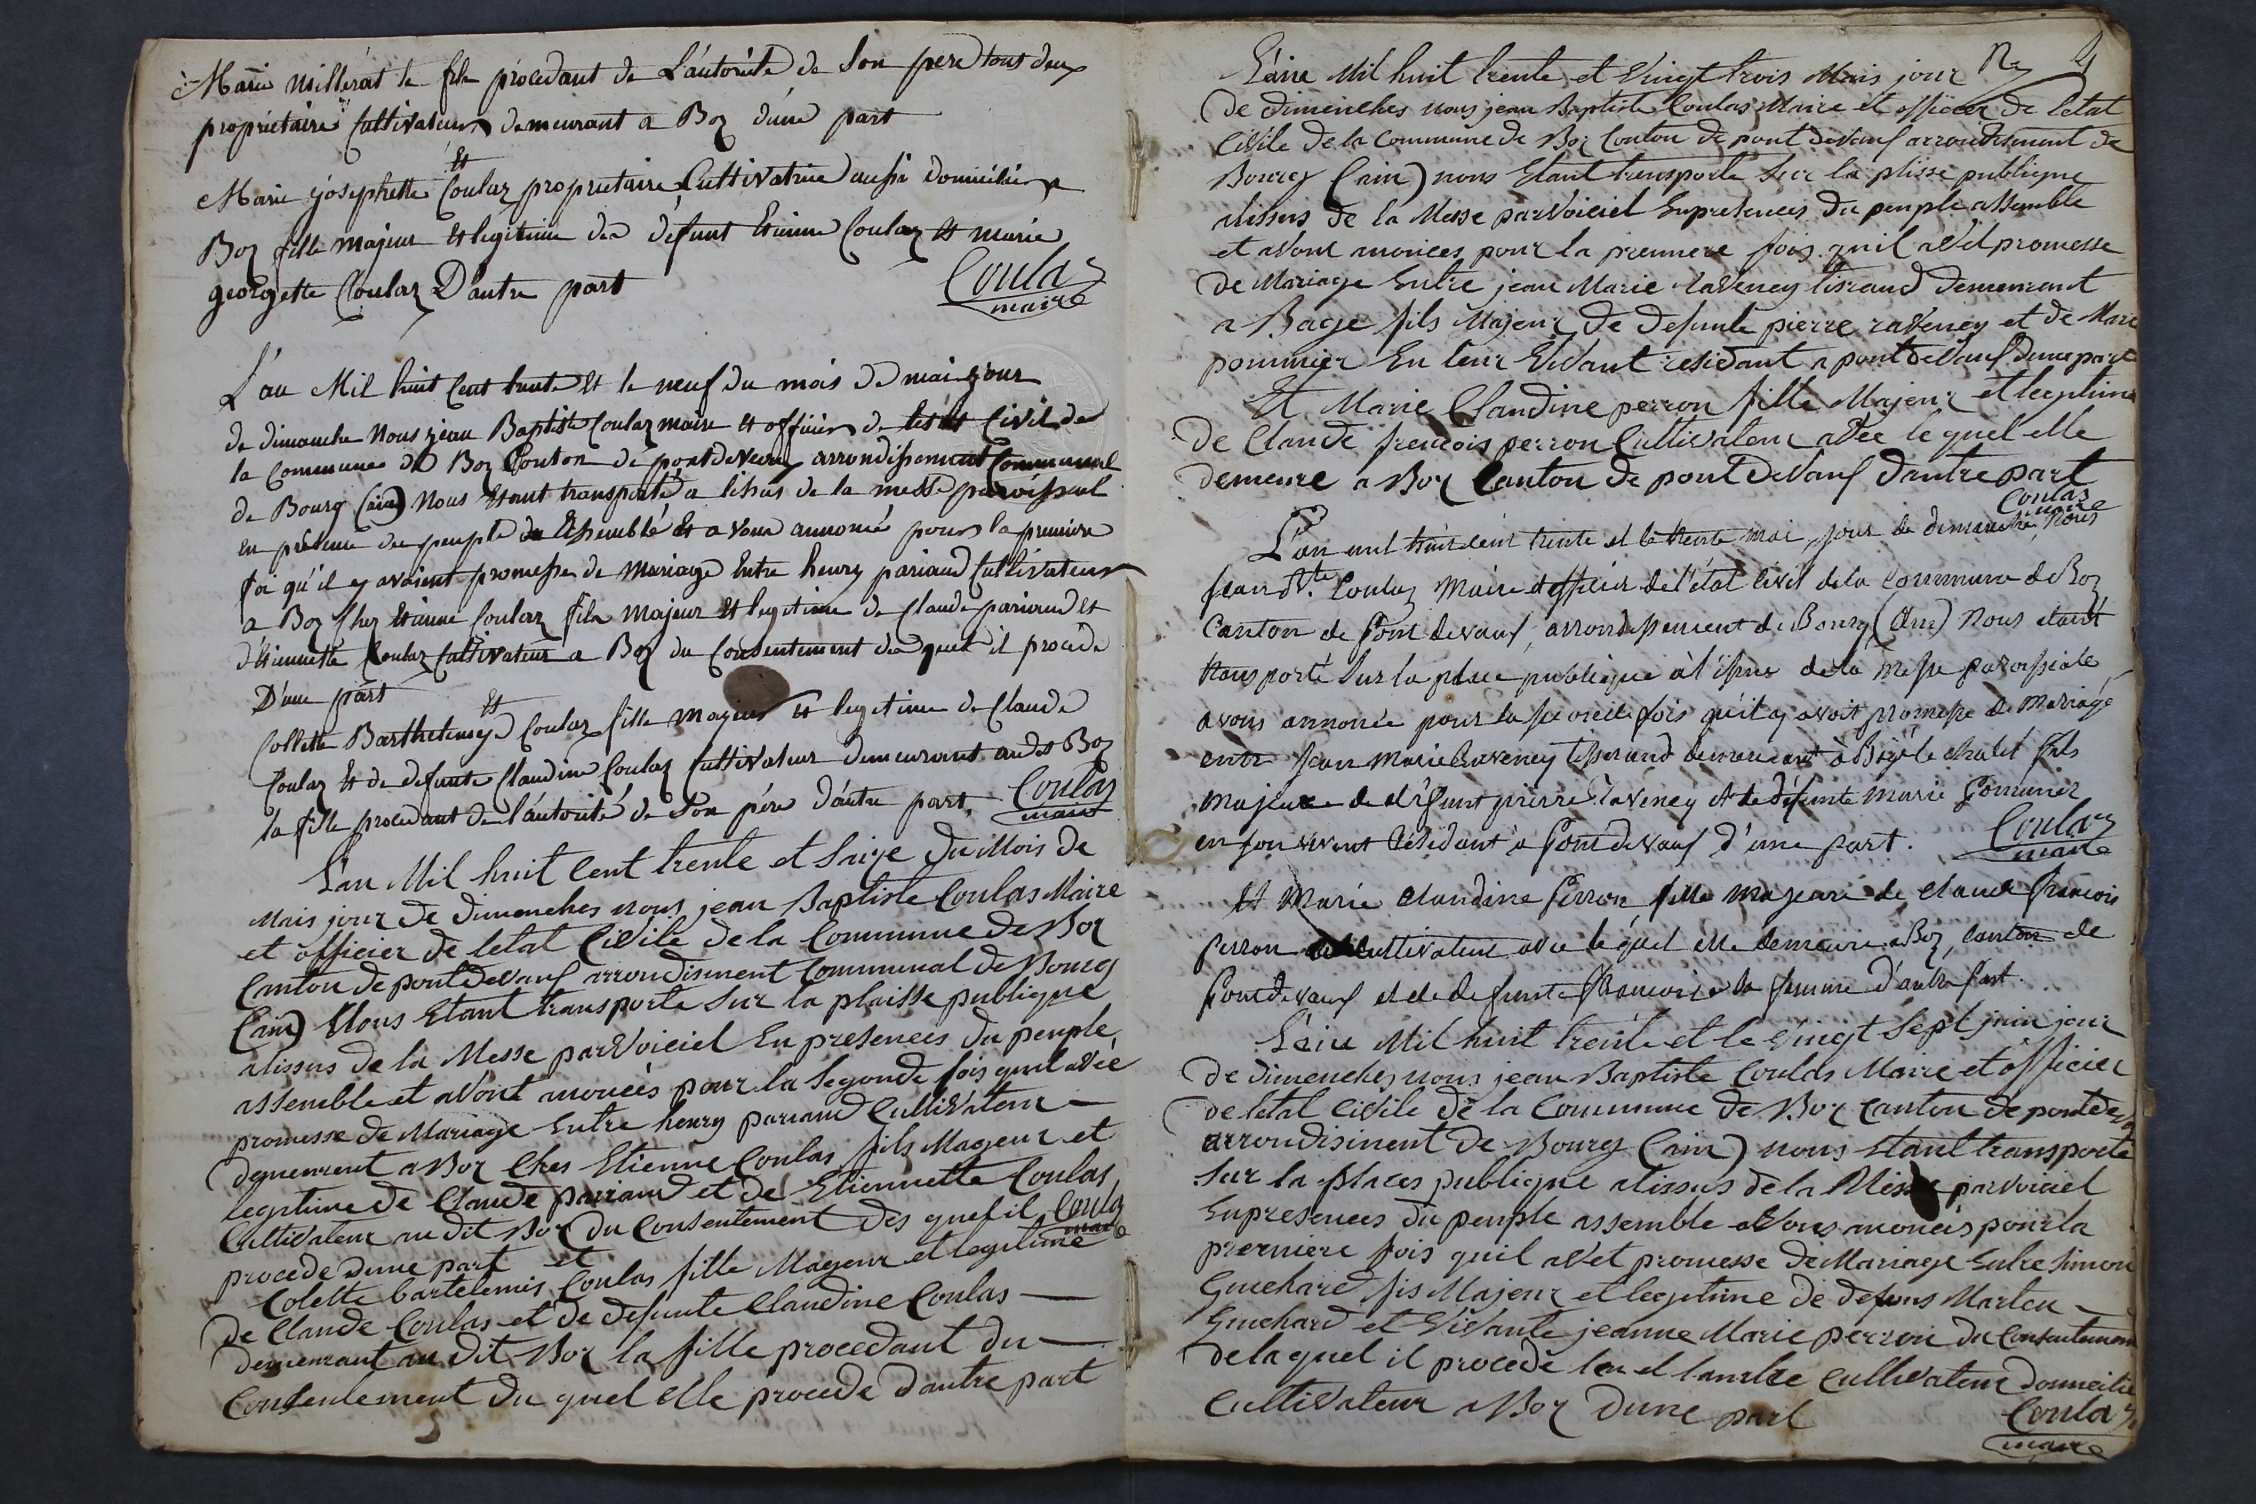 Marie Millerat le fils procedant de L'autorité de Son pere tout deux
proprietaire Cultivateurs demeurant a Boz d'une part
Et
Marie josephette Coulaz proprietaire Cultivatrice aussi domicilié a
Boz fille majeur Et legitime des défunt Etienne Coulaz Et marie
georgette Coulaz D'autre part
Coulaz
maire
L'an Mil huit Cent trente Et le neuf du mois de mai jour
de dimanche Nous jean Baptiste Coulaz maire Et officier de létat Civil de
la Commune de Boz Conton de pontdevaux arrondissement Communal
de Bourg (ain) Nous Etant transporté a lissus de la messe paroissial
en présence du peuple Assemblé Et avons annoncé pour la premiere
foi qu'il y avaient promesse de mariage Entre henry pariaud Cultivateur
a Boz Chez Etienne Coulaz fils majeur Et legitime de Claude pariaud et
d'Etiennette Coulaz Cultivateur a Boz du Consentement des quel il procéde
D'une part
Et
Collette Barthelemye Coulaz fille majeur Et legitime de Claude
Coulaz Et de defunte Claudine Coulaz Cultivateur demeurant audit Boz
la fille procedant de l'autorité de Son pére d'autre part
Coulaz
maire
L'an Mil huit Cent trente et Saize du Mois de
Mais jour de dimenches nous jean Baptiste Coulas Maire
et officier de letat Civile de la Commune de Boz
Canton de pontdevaux arrondisment Communal de Bourg
(ain) Nous Etant transporte Sur la plaisse publique
alissus de la Messe parvoiciel En presences du peuple
assemble et avont anonces pour la Segonde fois quil avée
promesse de Mariage Entre henry pariaud Cultivateur
demeurent a Boz Ches Etienne Coulas fils Mageur et
legitime de Claude pariaud et de Etiennette Coulas
Cultivateur au dit Boz du Consentement des quel il
Coulaz
maire
procede dune part et
Colette bartelemis Coulas fille Mageur et legitime
de Claude Coulas et de defunte Claudine Coulas
demeurant au dit Boz la fille procedant du
Consentement du quel elle procede dautre part
L'an Mil huit trente et Vingt trois Mais jour
de dimenches nous jean Baptiste Coulas Maire et officier de letat
Civile de la Commune de Boz Conton de pont devaux arrondisment de
Bourg (ain) nous Etant transporte Sur la plisse publique
alissus de la Messe parvoiciel En presences du peuple assemble
et avont anonces pour la premiere fois quil avét promesse
de Mariage Entre jean Marie raveney tisraud demeurant
a Bage fils Majeur de defunte pierre raveney et de Marie
pommier En leur Vivant residant a pont devaux dune part
Et Marie Claudine perron fille Majeur et legitime
de Claude francois perron Cultivateur avéc le quel elle
demeure a Boz Canton de pont devaux dautre part
Coulaz
maire
L'an mil huit cent trente et le trente mai, jour de dimanche, Nous
Jean Bte. Coulaz Maire et officier de l'état civil de la Commune de Boz
Canton de Pont devaux, arrondissement de Bourg (Ain) Nous étant
transporté Sur la place publique à l'issus de la Messe paroissiale
avons annoncée pour la seconde fois qu'il y avoit promesse de Mariage
entre Jean Marie Raveney tisserand demeurant à Bagé le chatel fils
Majeur de défunt pierre Raveney et de défunte Marie Pommier
en son vivent Résidant a Pont devaux d'une part.
Coulaz
maire
Et Marie Claudine Perron fille Majeure de Claude francois
Perron Cultivateur avec le quel elle demeure a Boz, canton de
Pontdevaux et de defunte Francoise la femme d'autre part.
L'an Mil huit trente et le Vingt Sept juin jour
de dimenches nous jean Baptiste Coulas Maire et officier
de letat Civile de la Commune de Boz Canton de pont de
arrondisment de Bourg (ain) nous Etant transporte
Sur la places publique alissus de la Messe parvoiciel
En presences du peuple assemble avons anoncés pour la
premiere fois quil avét promesse de Mariage Entre Simon
Guichard fis Majeur et legitime de defuns Marten
Guichard et Vivante jeanne Marie perron du Consentement
de la quel il procede lun et lautre Cultivateur domicilié
Cultivateur a Boz dune part
Coulaz
maire